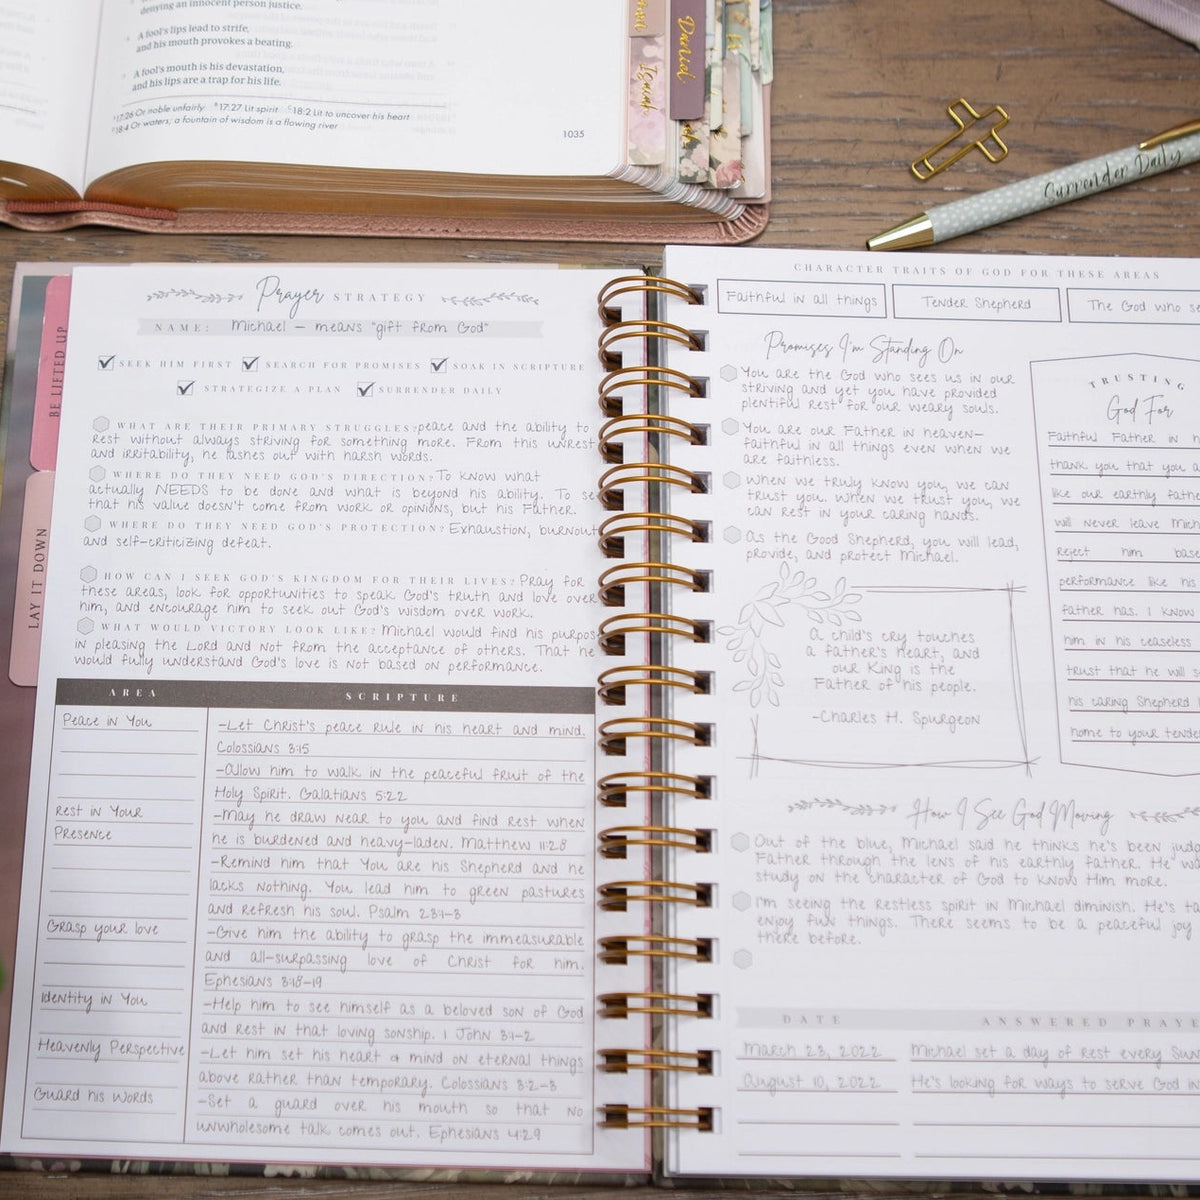 denying an innocent person justice.
A fool's lips lead to strife,
and his mouth provokes a beating.
A fool's mouth is his devastation,
and his lips are a trap for his life.
17:26 Or noble unfairly 17:27 Lit spirit 18:2 Lit to uncover his heart
18:4 Or waters; a fountain of wisdom is a flowing river
1035
Isaiah
Daniel
Surrender Daily
BE LIFTED UP
LAY IT DOWN
Prayer STRATEGY
NAME: Michael – means "gift from God"
SEEK HIM FIRST SEARCH FOR PROMISES SOAK IN SCRIPTURE
STRATEGIZE A PLAN SURRENDER DAILY
WHAT ARE THEIR PRIMARY STRUGGLES? peace and the ability to
rest without always striving for something more. From this unrest
and irritability, he lashes out with harsh words.
WHERE DO THEY NEED GOD'S DIRECTION? To know what
actually NEEDS to be done and what is beyond his ability. To se
that his value doesn't come from work or opinions, but his Father.
WHERE DO THEY NEED GOD'S PROTECTION? Exhaustion, burnout
and self-criticizing defeat.
HOW CAN I SEEK GOD'S KINGDOM FOR THEIR LIVES? Pray for
these areas, look for opportunities to speak God's truth and love over
him, and encourage him to seek out God's wisdom over work.
WHAT WOULD VICTORY LOOK LIKE? Michael would find his purpos
in pleasing the Lord and not from the acceptance of others. That he
would fully understand God's love is not based on performance.
AREA SCRIPTURE
Peace in You
-Let Christ's peace rule in his heart and mind.
Colossians 3:15
-Allow him to walk in the peaceful fruit of the
Holy Spirit. Galatians 5:22
Rest in Your
Presence
-May he draw near to you and find rest when
he is burdened and heavy-laden. Matthew 11:28
-Remind him that You are his Shepherd and he
lacks nothing. You lead him to green pastures
and refresh his soul. Psalm 23:1-3
Grasp your love
-Give him the ability to grasp the immeasurable
and all-surpassing love of Christ for him.
Ephesians 3:18-19
Identity in You
-Help him to see himself as a beloved son of God
and rest in that loving sonship. 1 John 3:1-2
Heavenly Perspective
-Let him set his heart & mind on eternal things
above rather than temporary. Colossians 3:2-3
Guard his words
-Set a guard over his mouth so that no
unwholesome talk comes out. Ephesians 4:29
CHARACTER TRAITS OF GOD FOR THESE AREAS
Faithful in all things
Tender Shepherd
The God who se
Promises I'm Standing On
You are the God who sees us in our
striving and yet you have provided
plentiful rest for our weary souls.
You are our Father in heaven–
faithful in all things even when we
are faithless.
When we truly know you, we can
trust you. When we trust you, we
can rest in your caring hands.
As the Good Shepherd, you will lead,
provide, and protect Michael.
A child's cry touches
a father's heart, and
our King is the
Father of his people.
-Charles H. Spurgeon
TRUSTING
God For
Faithful Father in h
thank you that you a
like our earthly fathe
will never leave Mich
reject him base
performance like his
father has. I know
him in his ceaseless
trust that he will s
his caring Shepherd
home to your tende
How I See God Moving
Out of the blue, Michael said he thinks he's been judg
Father through the lens of his earthly father. He w
study on the character of God to know Him more.
I'm seeing the restless spirit in Michael diminish. He's ta
enjoy fun things. There seems to be a peaceful joy
there before.
DATE ANSWERED PRAYE
March 23, 2022 Michael set a day of rest every Sun
August 10, 2022 He's looking for ways to serve God in